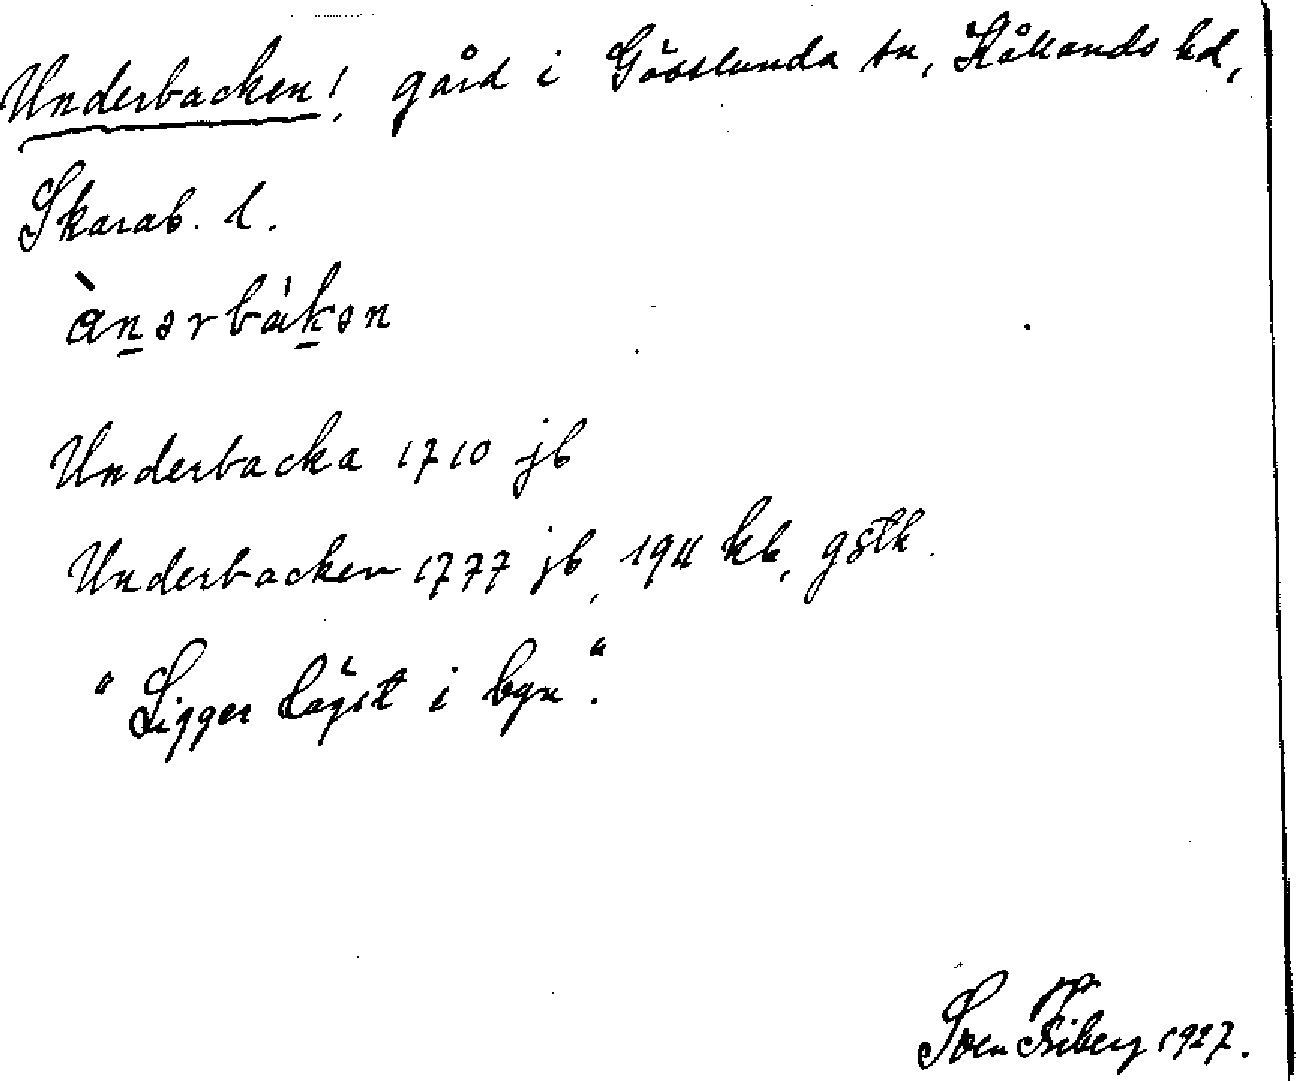 Underbacken!, gård i Gösslunda sn, Kållands hd,
Skarab. l.
àn̲ərbák̲ən
Underbacka 1710 jb
Underbacken 1777 jb, 1911 kb, gstk.
"Ligger lägst i byn".
Sven Friberg 1927.